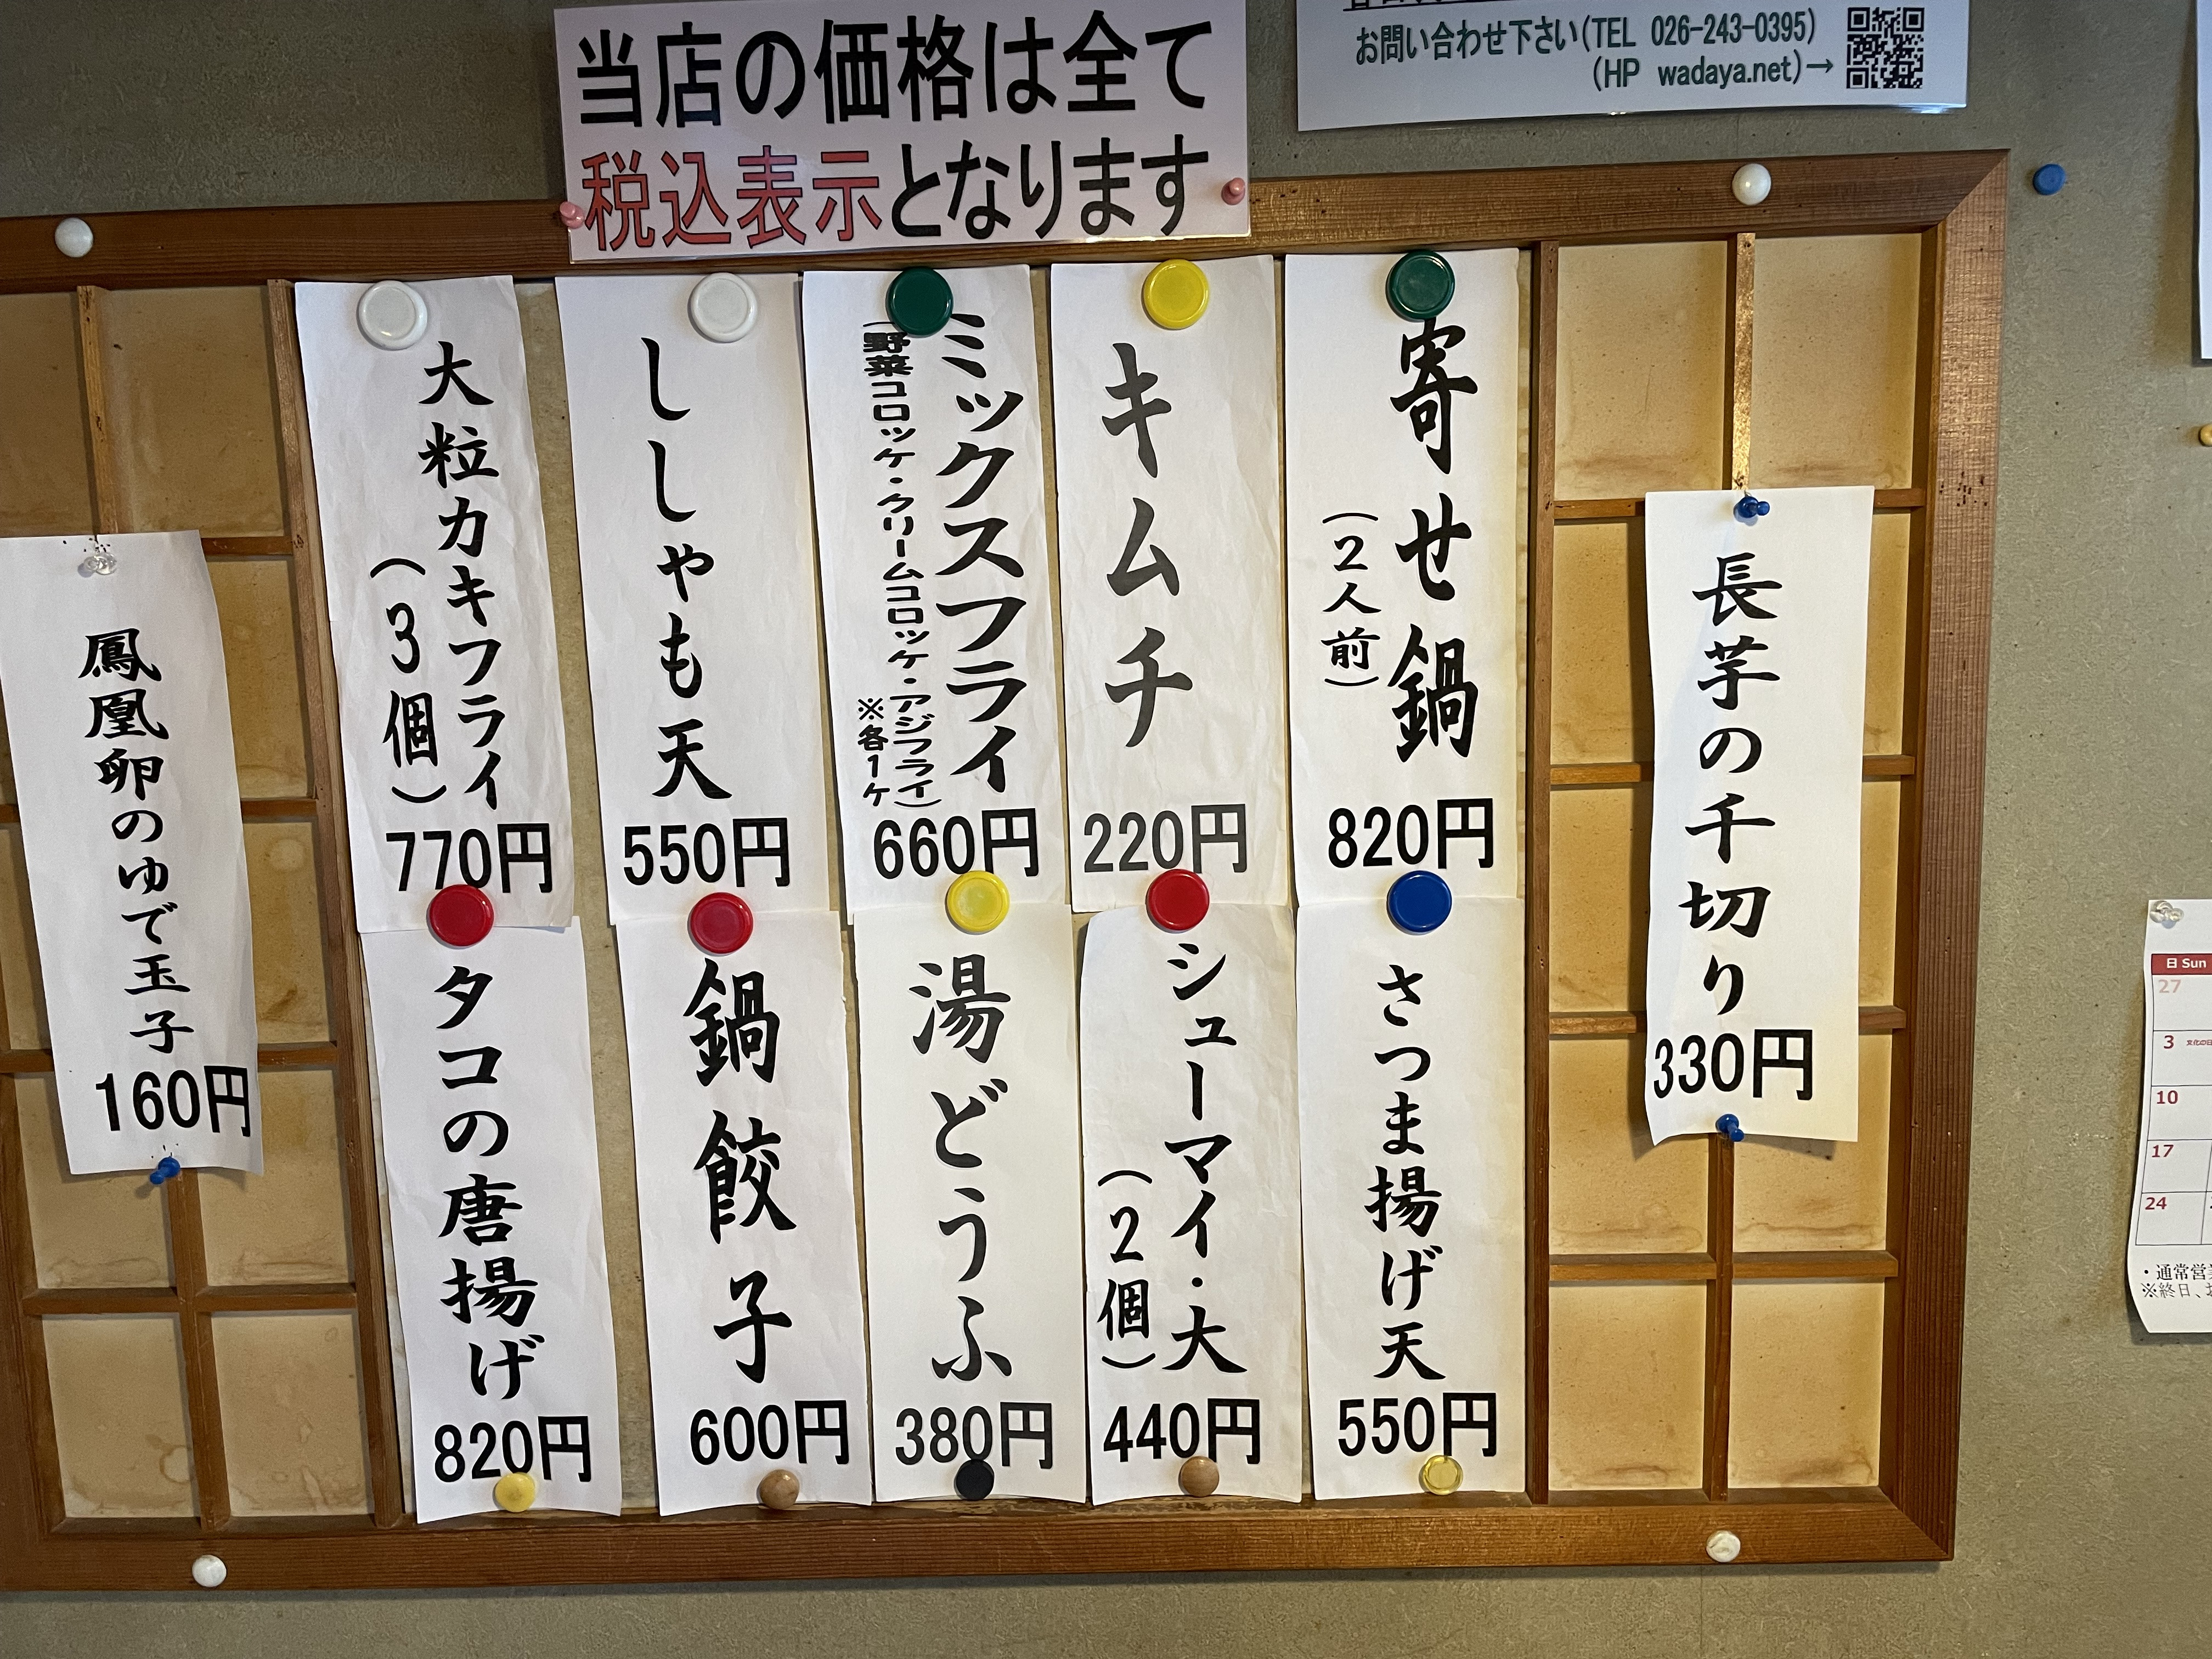 当店の価格は全て
税込表示となります
お問い合わせ下さい(TEL 026-243-0395)
(HP wadaya.net)→
長芋の千切り
330円
寄せ鍋
(2人前)
820円
キムチ
220円
ミックスフライ
(野菜コロッケ・クリームコロッケ・アジフライ)
※各1ケ
660円
ししゃも天
550円
大粒カキフライ
(3個)
770円
さつま揚げ天
550円
シューマイ・大
(2個)
440円
湯どうふ
380円
鍋餃子
600円
タコの唐揚げ
820円
鳳凰卵のゆで玉子
160円
日 Sun
27
3 文化の日
10
17
24
・通常営
※終日、